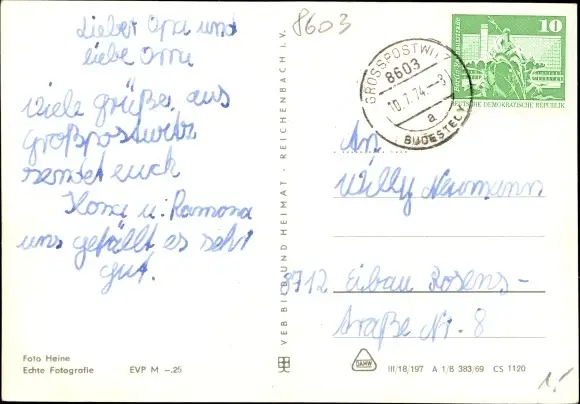 Lieber Opa und
liebe Oma
Viele Grüße aus
Großpostwitz
sendet euch
u. Ramona
uns gefällt es sehr
gut.
Foto Heine
Echte Fotografie EVP M –,25
VEB BILD UND HEIMAT · REICHENBACH I. V.
8603
GROSSPOSTWITZ
8603
10.1.74
a
10
DEUTSCHE DEMOKRATISCHE REPUBLIK
An
Willy Neumann
8712 Eibau Rosens-
traße Nr. 8
III/18/197 A 1/B 383/69 CS 1120
1,-